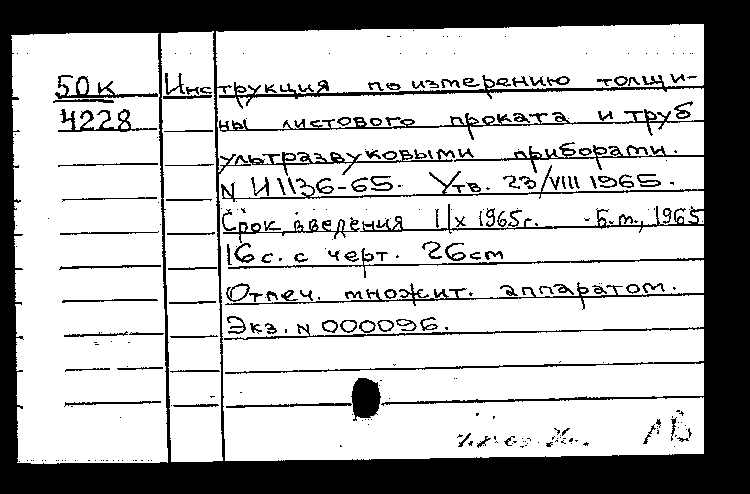 50к Инструкция по измерению толщи-
4228 ны листового проката и труб
ультразвуковыми приборами.
N И1136-65. Утв. 23/VIII 1965.
Срок введения 1/х 1965г. - Б.м., 1965
16с. с черт. 26см
Отпеч. множит. аппаратом.
Экз. N 000096.